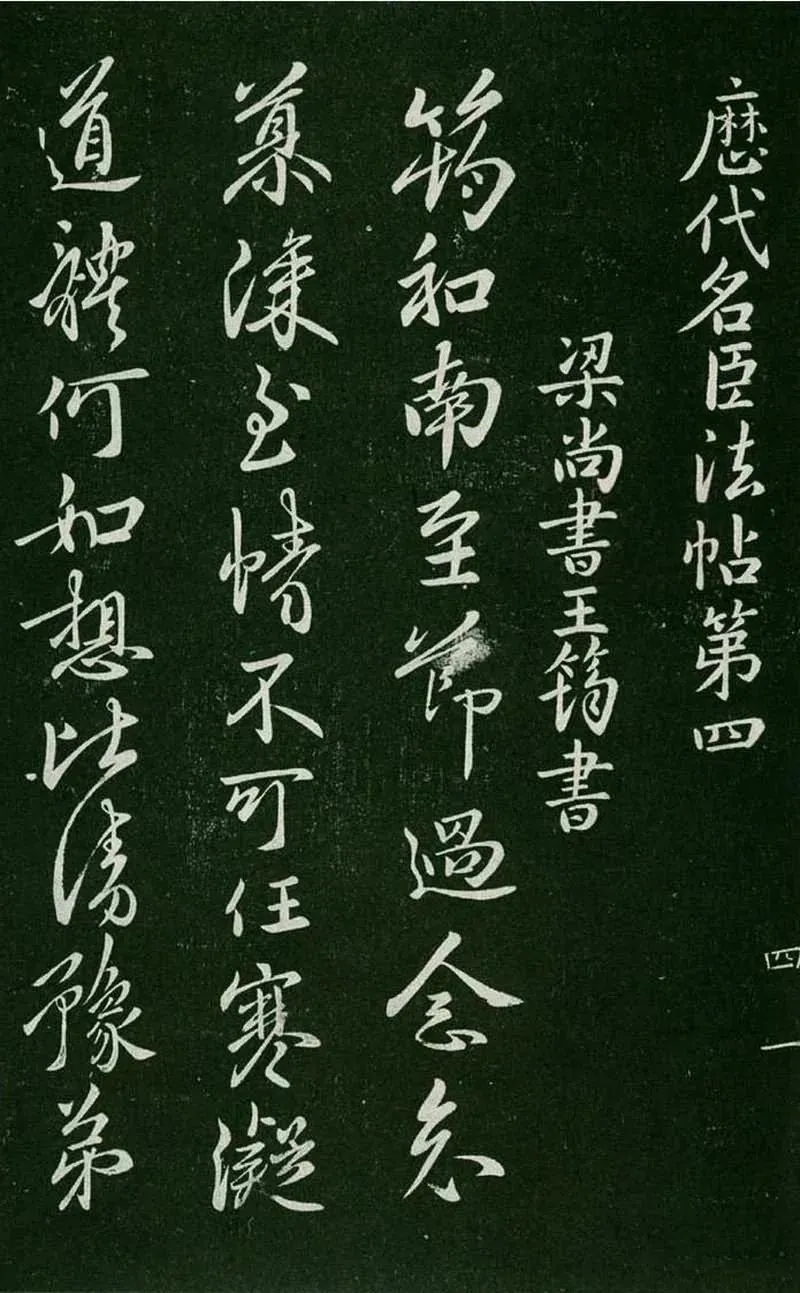 歷代名臣法帖第四
梁尚書王筠書
筠和南至節過念哀
慕深至情不可任寒凝
道體何如想比清豫弟
四 一